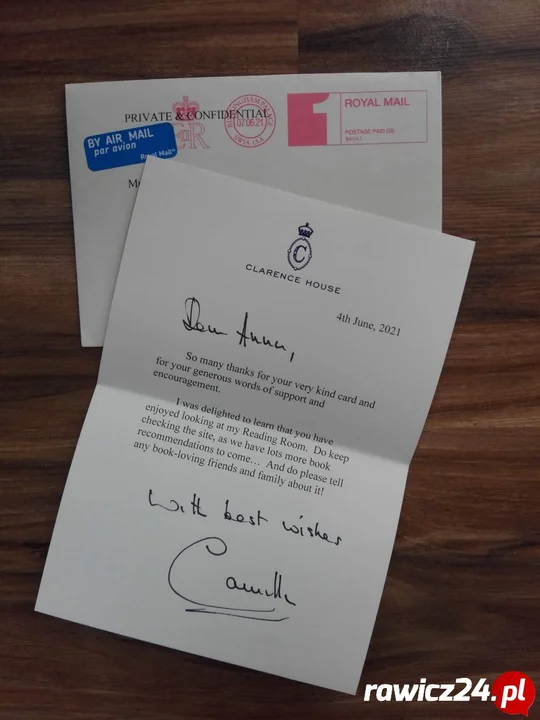 PRIVATE & CONFIDENTIAL
BY AIR MAIL
par avion
Royal Mail
BUCKINGHAM PALACE
07.06.21
SW1A 1AA
1
ROYAL MAIL
POSTAGE PAID GB
C
CLARENCE HOUSE
4th June, 2021
Dear Anna,
So many thanks for your very kind card and
for your generous words of support and
encouragement.
I was delighted to learn that you have
enjoyed looking at my Reading Room. Do keep
checking the site, as we have lots more book
recommendations to come… And do please tell
any book-loving friends and family about it!
With best wishes
Camilla
rawicz24.pl